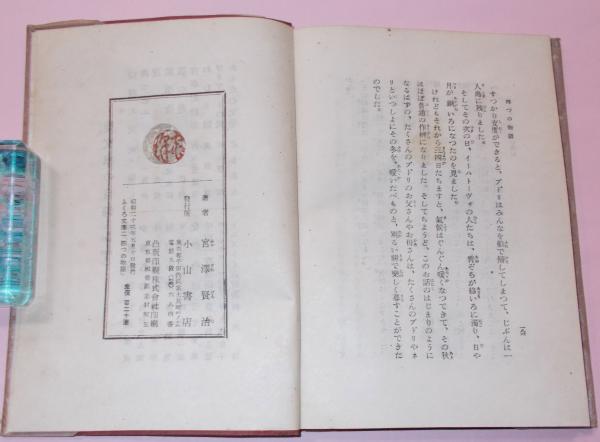 四つの物語
すつかり支度ができると、ブドリはみんなを船で帰してしまつて、じぶんは一
人島に残りました。
そしてその次の日、イーハトーヴォの人たちは、青ぞらが緑いろに濁り、日や
月が銅いろになつたのを見ました。
けれどもそれから三四日たちますと、気候はぐんぐん暖くなつてきて、その秋
はほぼ普通の作柄になりました。そしてちようど、このお話のはじまりのように
なるはずの、たくさんのブドリのお父さんやお母さんは、たくさんのブドリやネ
リといつしよにその冬を、暖いたべものと、明るい薪で楽しく暮すことができた
のでした。
著者 宮澤賢治
発行所 小山書店
凸版印刷株式会社印刷
定価 百二十円